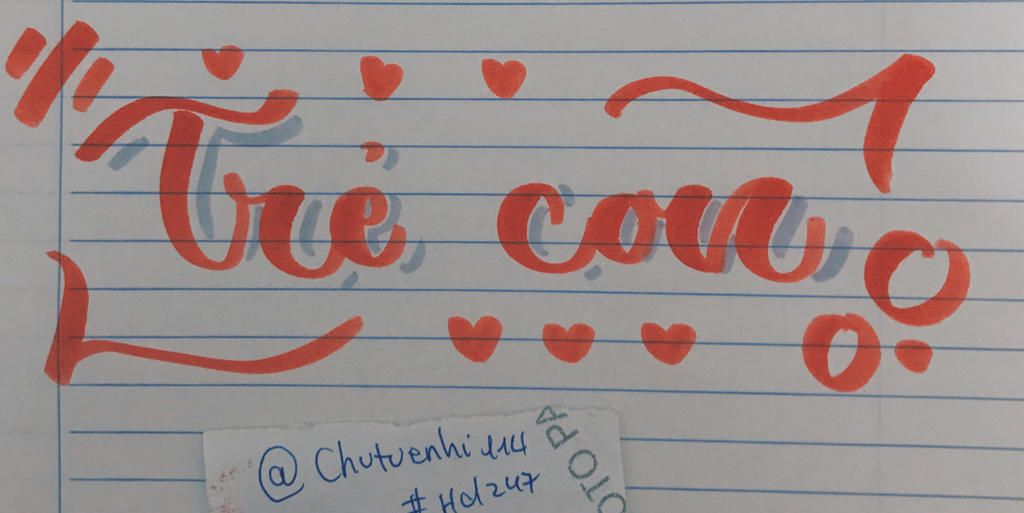 Trẻ con
@Chutuenhi114
#Hd247
OTO PA